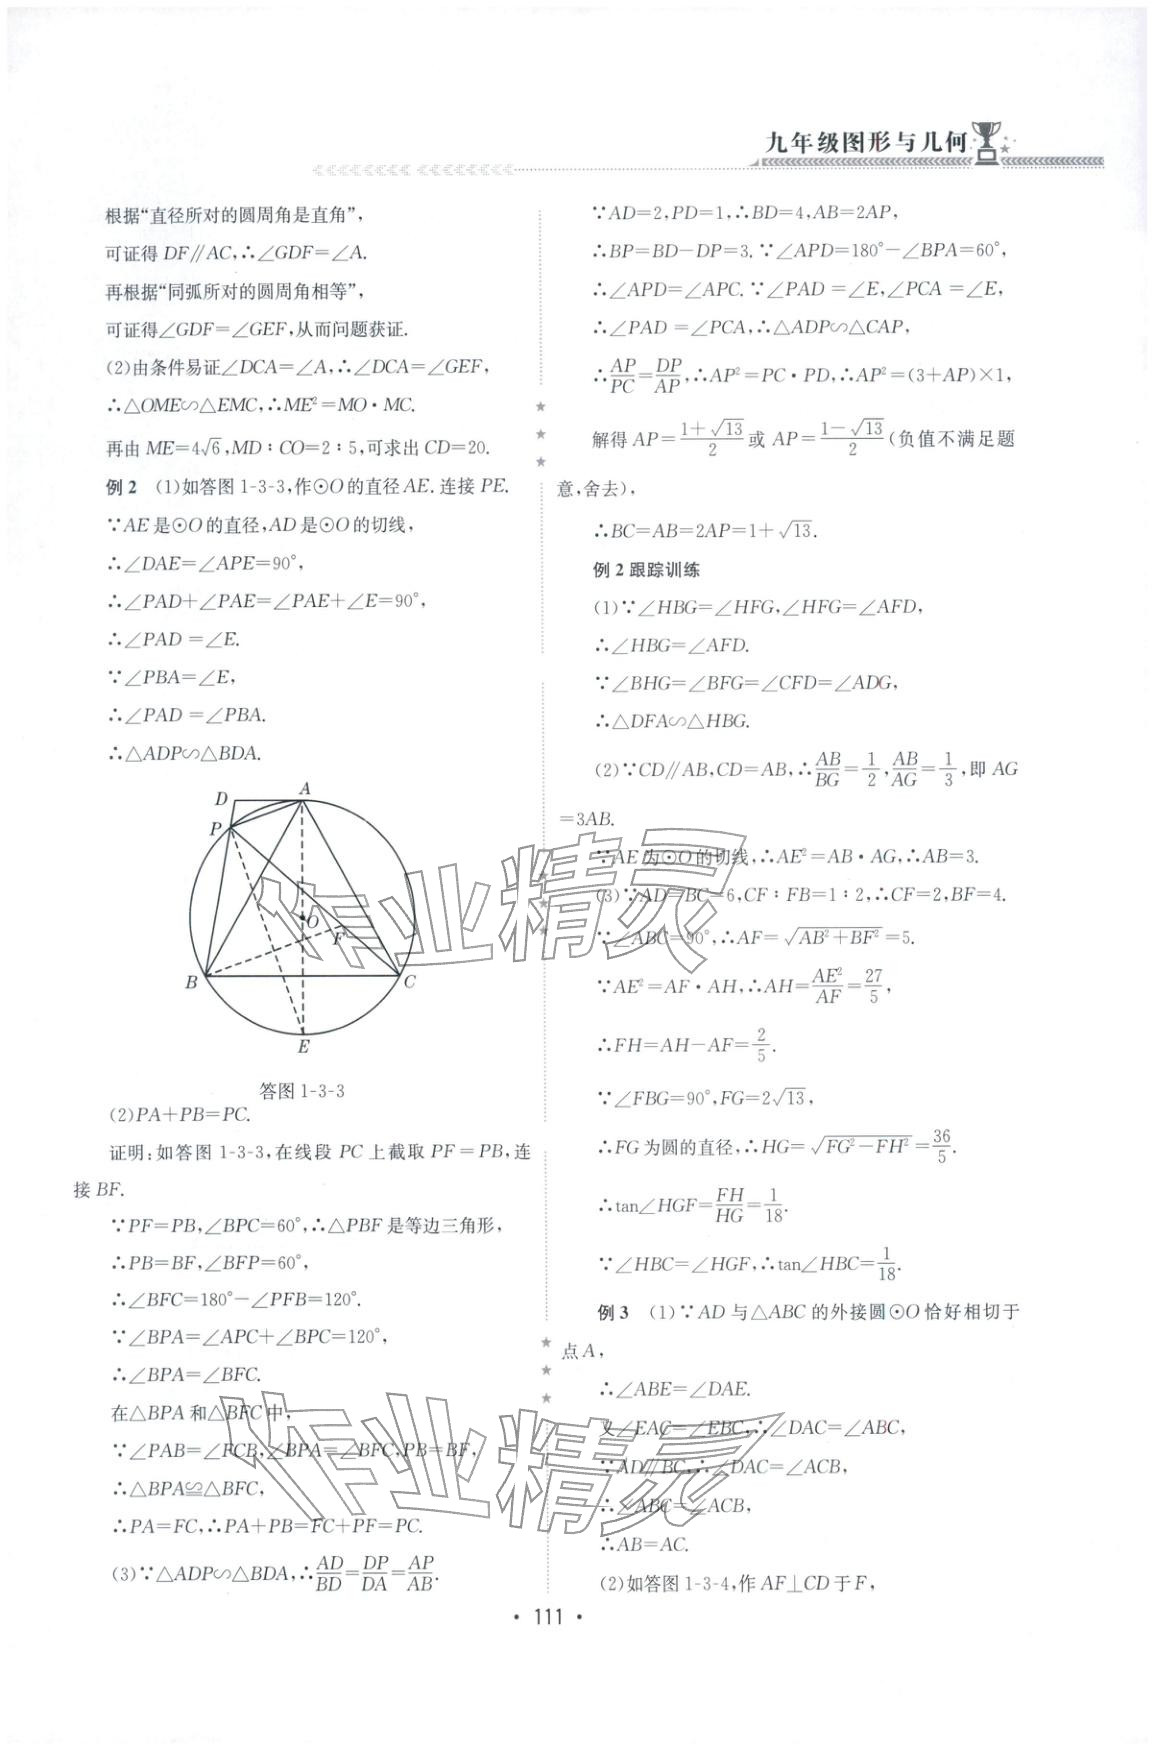 九年级图形与几何
根据“直径所对的圆周角是直角”，
可证得 DF∥AC,∴∠GDF=∠A.
再根据“同弧所对的圆周角相等”，
可证得∠GDF=∠GEF,从而问题获证.
(2)由条件易证∠DCA=∠A,∴∠DCA=∠GEF,
∴△OME∽△EMC,∴ME²=MO·MC.
再由 ME=4√6,MD∶CO=2∶5,可求出 CD=20.
例 2 (1)如答图 1-3-3,作⊙O的直径 AE.连接 PE.
∵AE是⊙O的直径,AD是⊙O的切线,
∴∠DAE=∠APE=90°,
∴∠PAD+∠PAE=∠PAE+∠E=90°,
∴∠PAD =∠E.
∵∠PBA=∠E,
∴∠PAD =∠PBA.
∴△ADP∽△BDA.
D A
P
O
F
B C
E
答图 1-3-3
(2)PA+PB=PC.
证明:如答图 1-3-3,在线段 PC 上截取 PF=PB,连
接 BF.
∵PF=PB,∠BPC=60°,∴△PBF是等边三角形,
∴PB=BF,∠BFP=60°,
∴∠BFC=180°-∠PFB=120°.
∵∠BPA=∠APC+∠BPC=120°,
∴∠BPA=∠BFC.
在△BPA和△BFC中,
∵∠PAB=∠FCB,∠BPA=∠BFC,PB=BF,
∴△BPA≌△BFC,
∴PA=FC,∴PA+PB=FC+PF=PC.
(3)∵△ADP∽△BDA,∴AD/BD=DP/DA=AP/AB.
∵AD=2,PD=1,∴BD=4,AB=2AP,
∴BP=BD-DP=3.∵∠APD=180°-∠BPA=60°,
∴∠APD=∠APC.∵∠PAD =∠E,∠PCA =∠E,
∴∠PAD =∠PCA,∴△ADP∽△CAP,
∴AP/PC=DP/AP,∴AP²=PC·PD,∴AP²=(3+AP)×1,
解得 AP=(1+√13)/2 或 AP=(1-√13)/2(负值不满足题
意,舍去),
∴BC=AB=2AP=1+√13.
例 2 跟踪训练
(1)∵∠HBG=∠HFG,∠HFG=∠AFD,
∴∠HBG=∠AFD.
∵∠BHG=∠BFG=∠CFD=∠ADG,
∴△DFA∽△HBG.
(2)∵CD∥AB,CD=AB,∴AB/BG=1/2,AB/AG=1/3,即 AG
=3AB.
∵AE为⊙O的切线,∴AE²=AB·AG,∴AB=3.
(3)∵AD=BC=6,CF∶FB=1∶2,∴CF=2,BF=4.
∵∠ABC=90°,∴AF=√(AB²+BF²)=5.
∵AE²=AF·AH,∴AH=AE²/AF=27/5,
∴FH=AH-AF=2/5.
∵∠FBG=90°,FG=2√13,
∴FG为圆的直径,∴HG=√(FG²-FH²)=36/5.
∴tan∠HGF=FH/HG=1/18.
∵∠HBC=∠HGF,∴tan∠HBC=1/18.
例 3 (1)∵AD 与△ABC 的外接圆⊙O恰好相切于
点 A,
∴∠ABE=∠DAE.
又∠EAC=∠EBC,∴∠DAC=∠ABC,
∵AD∥BC,∴∠DAC=∠ACB,
∴∠ABC=∠ACB,
∴AB=AC.
(2)如答图 1-3-4,作 AF⊥CD于 F,
· 111 ·
作业精灵
作业精灵